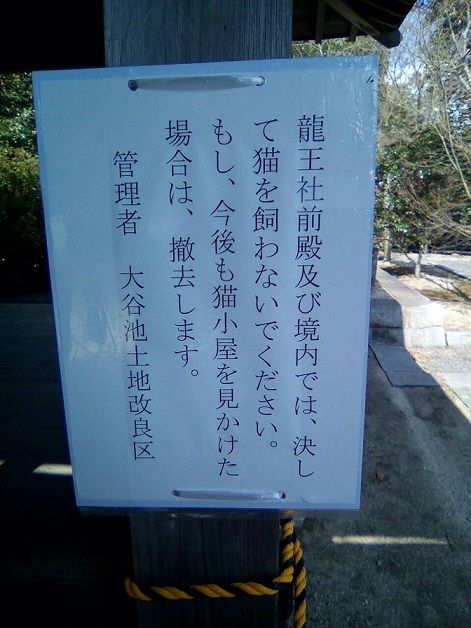 龍王社前殿及び境内では、決し
て猫を飼わないでください。
もし、今後も猫小屋を見かけた
場合は、撤去します。
管理者 大谷池土地改良区